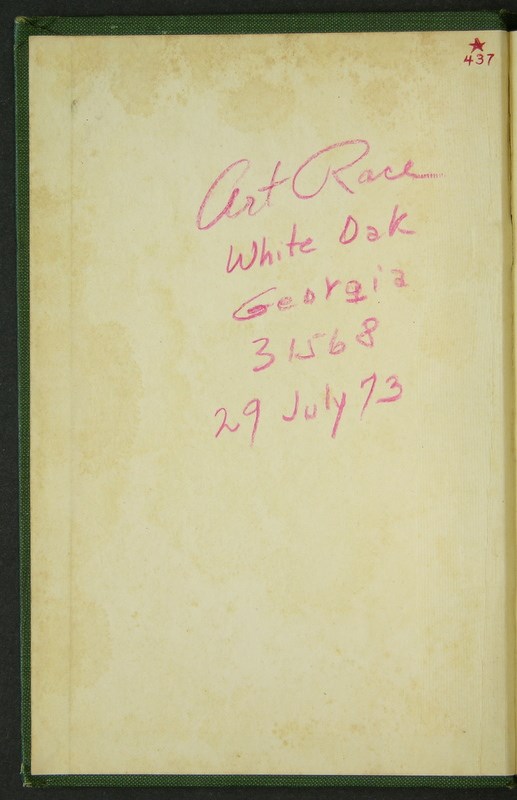 ★
437
Art Race
White Oak
Georgia
31568
29 July 73